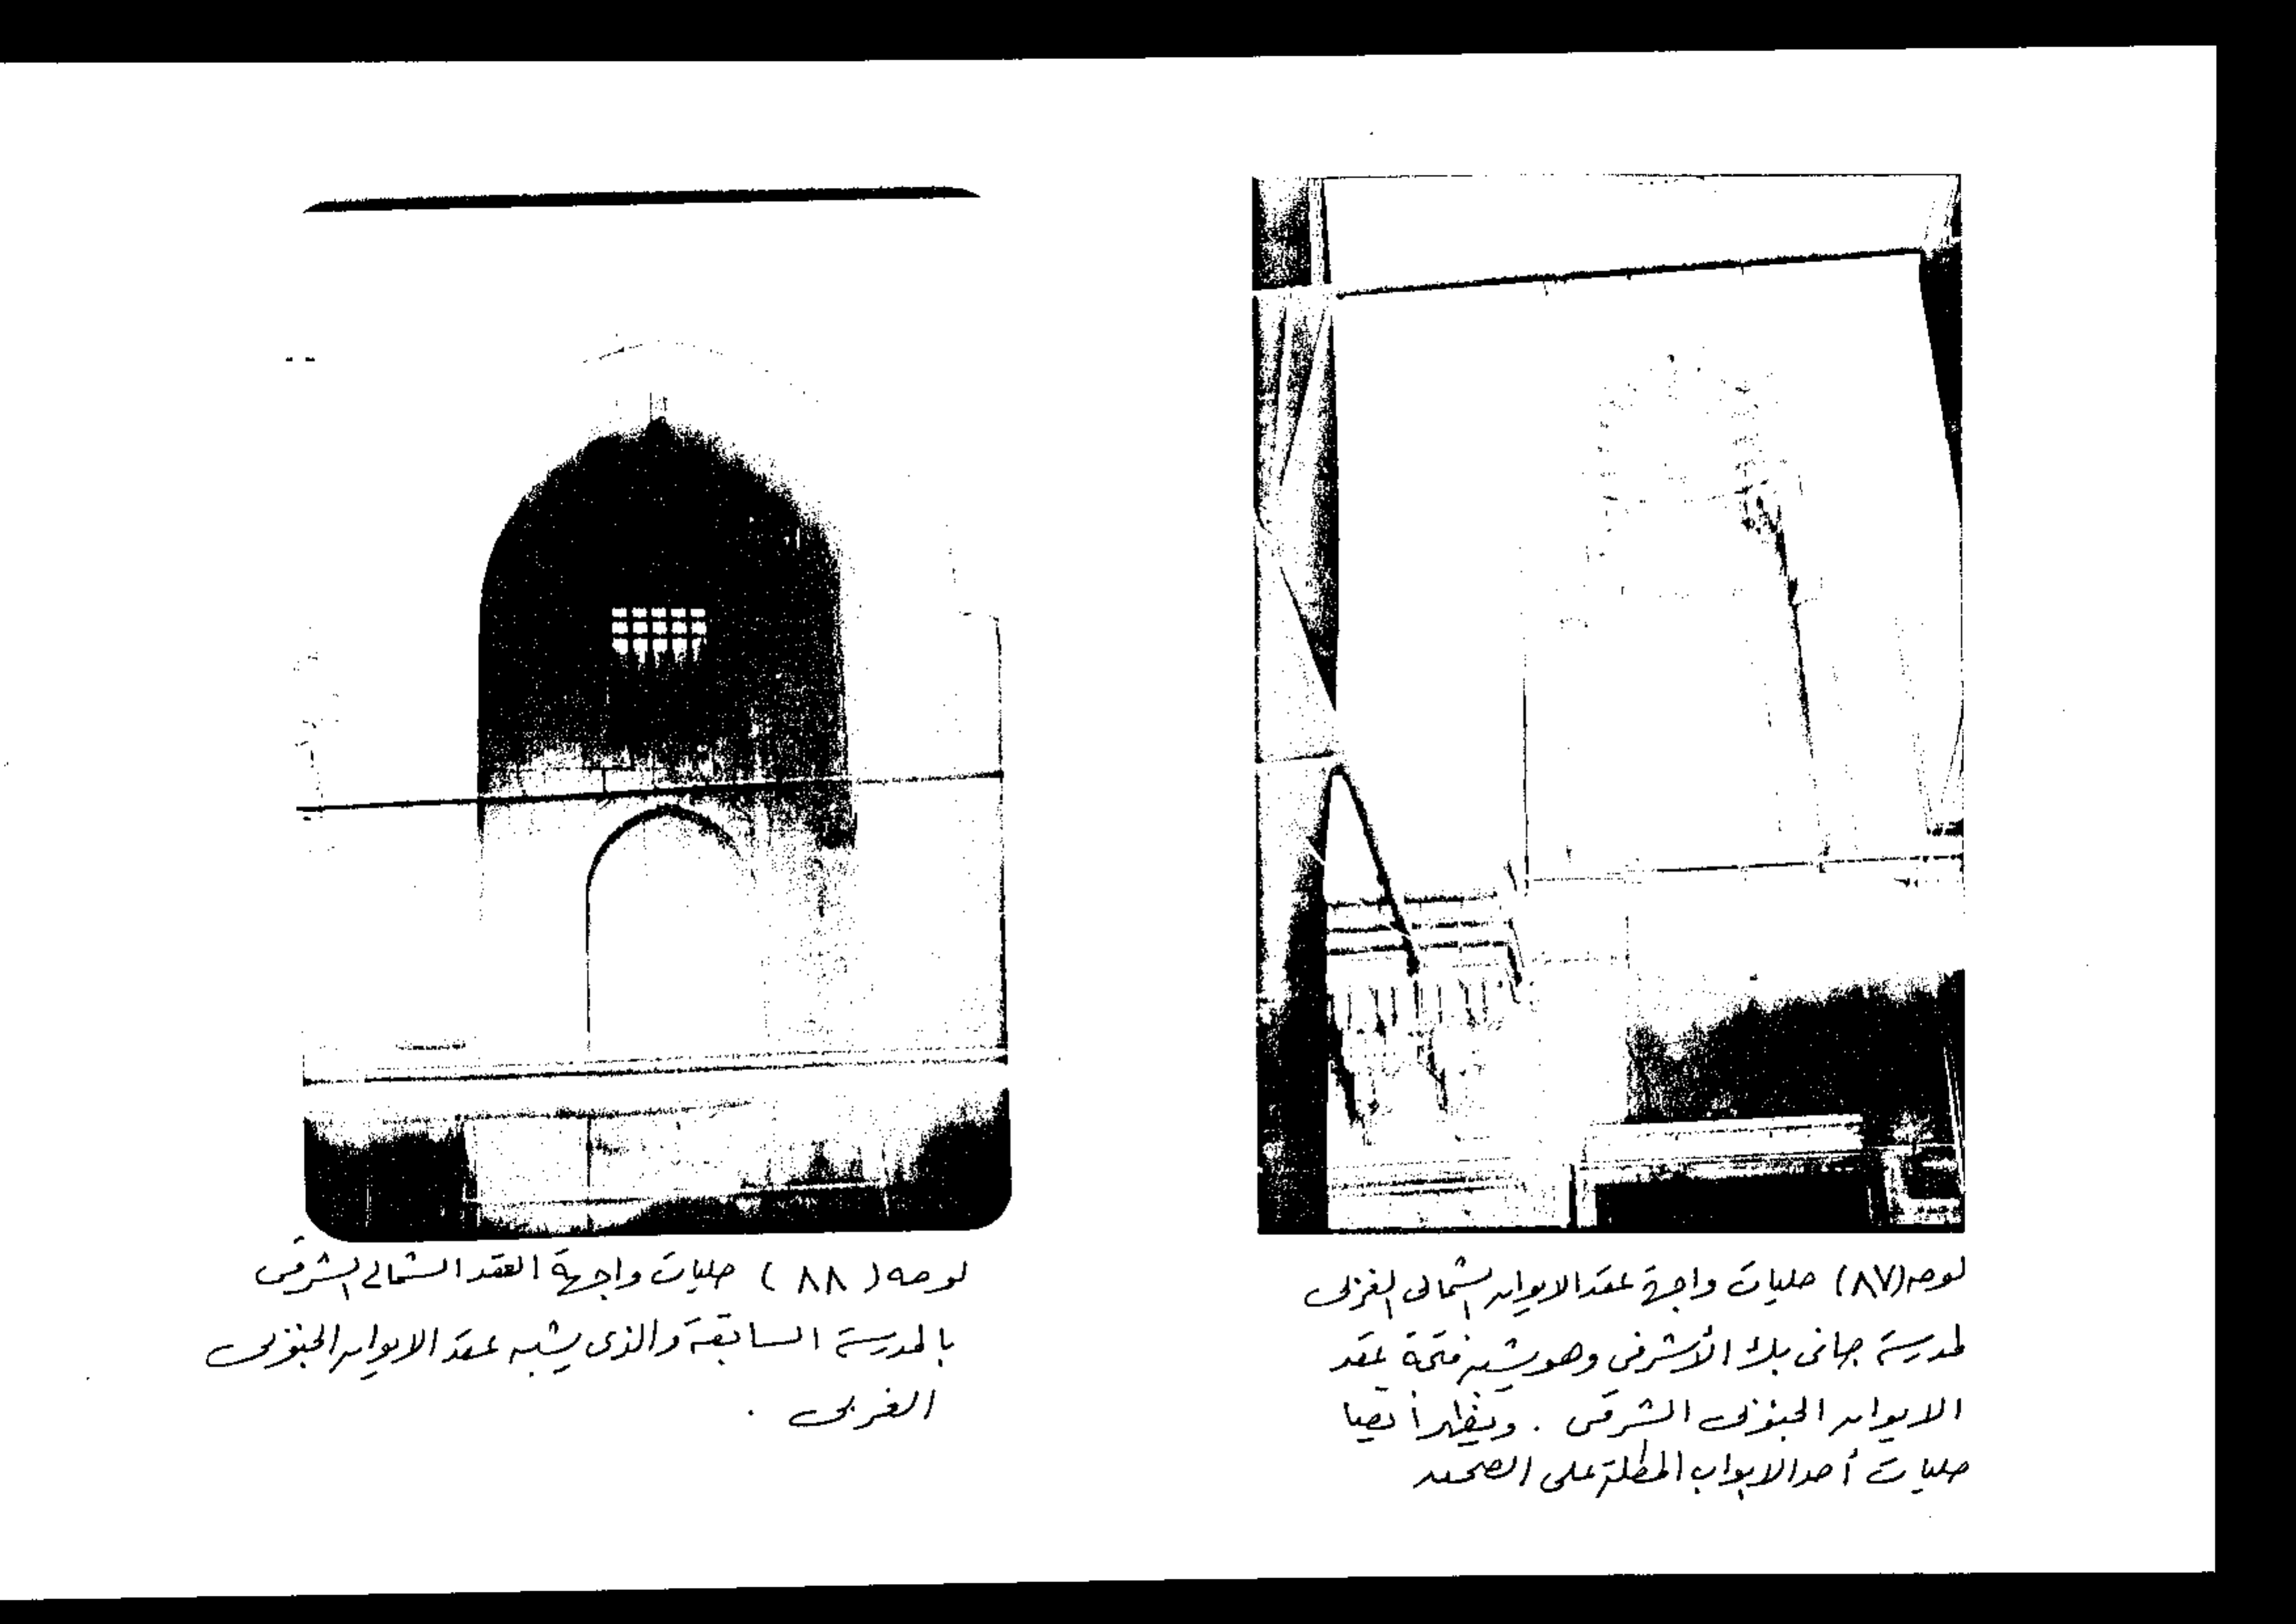 لوحه (٨٧) حليات واجهة عقد الايوان الشمالى الغربى
لمدرسة جانى بك الأشرفى وهو يشبه فتحة عقد
الايوان الجنوبى الشرقى . ويظهر أيضا
حليات أحد الابواب المطلة على الصحن
لوحه (٨٨) حليات واجهة العقد الشمالى الشرقى
بالمدرسة السابقة والذى يشبه عقد الايوان الجنوبى
الغربى .